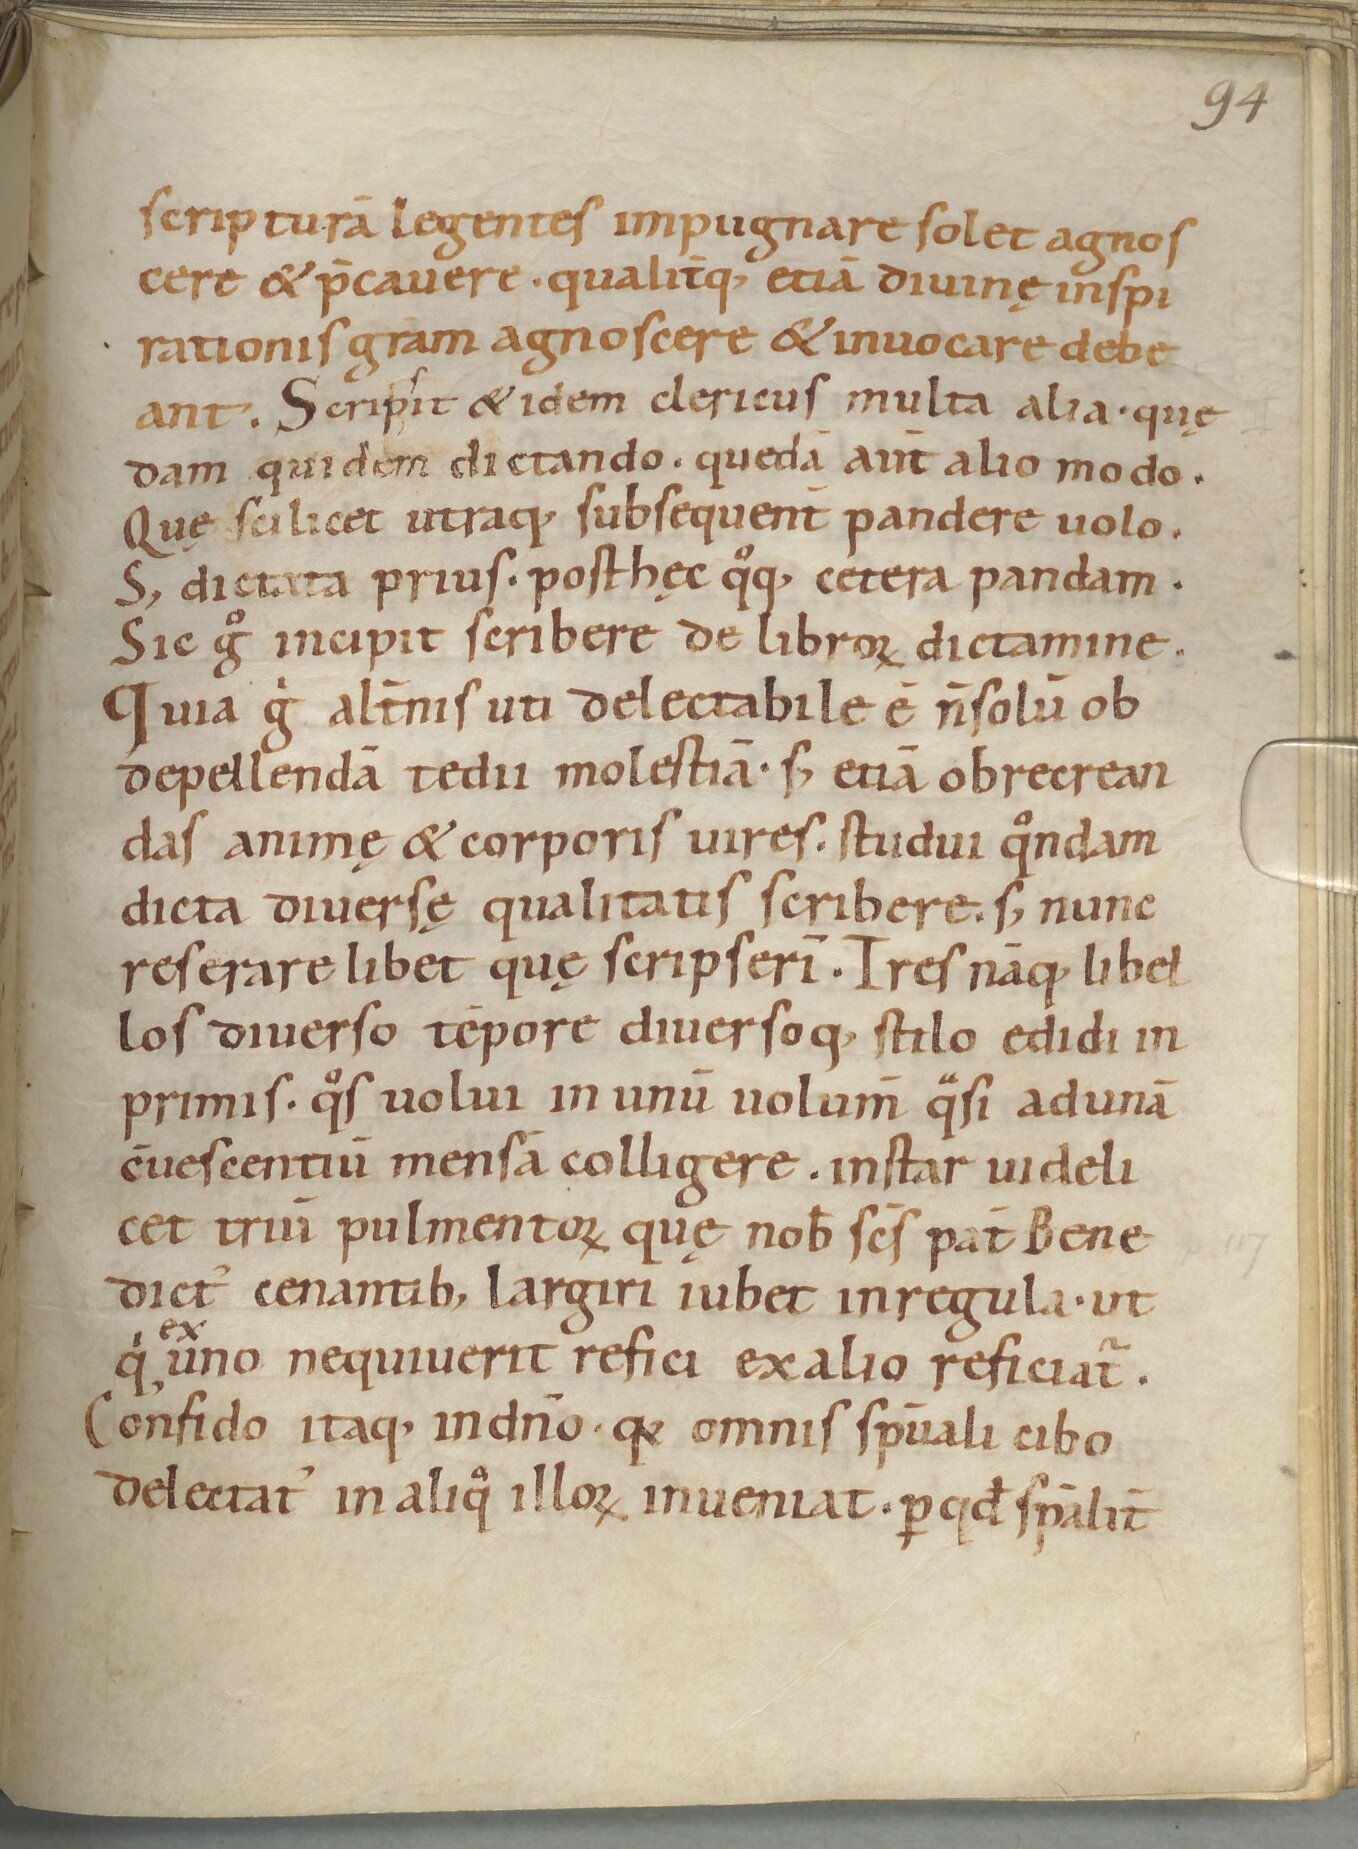 94
scripturā legentes impugnare solet agnos
cere & p̄cauere · qualit̄q, etiā diuinę inspi
rationis gr̄am agnoscere & inuocare debe
ant. Scripsit & idem clericus multa alia · quę
dam quidem dictando. quedā aut̄ alio modo.
Quę scilicet utraq, subsequent̄ pandere uolo.
S, dictata prius. posthęc qͦq, cetera pandam.
Sic gͦ incipit scribere de libroꝝ dictamine.
Quia gͥ alt̄nis uti delectabile ē n̄solū ob
depellendā tedii molestiā · s, etiā obrecrean
das animę & corporis uires. studui qͦndam
dicta diuersę qualitatis scribere. s, nunc
reserare libet quę scripserī. Tres nāq, libel
los diuerso tēpore diuersoq, stilo edidi in
primis · qͦs uolui in unū uolum̄ qͣsi adunā
c̄uescentiū mensā colligere. instar uideli
cet triū pulmentoꝝ quę nob̄ sc̄s pat̄ Bene
dict᾿ cenantib, largiri iubet inregula · ut
qͥ ex uno nequiuerit refici exalio reficiat᷑.
Confido itaq, indn̄o · qꝛ omnis sp̄uali cibo
delectat᾿ in aliqͦ illoꝝ inueniat. ꝑ qd̄ sp̄alit̄